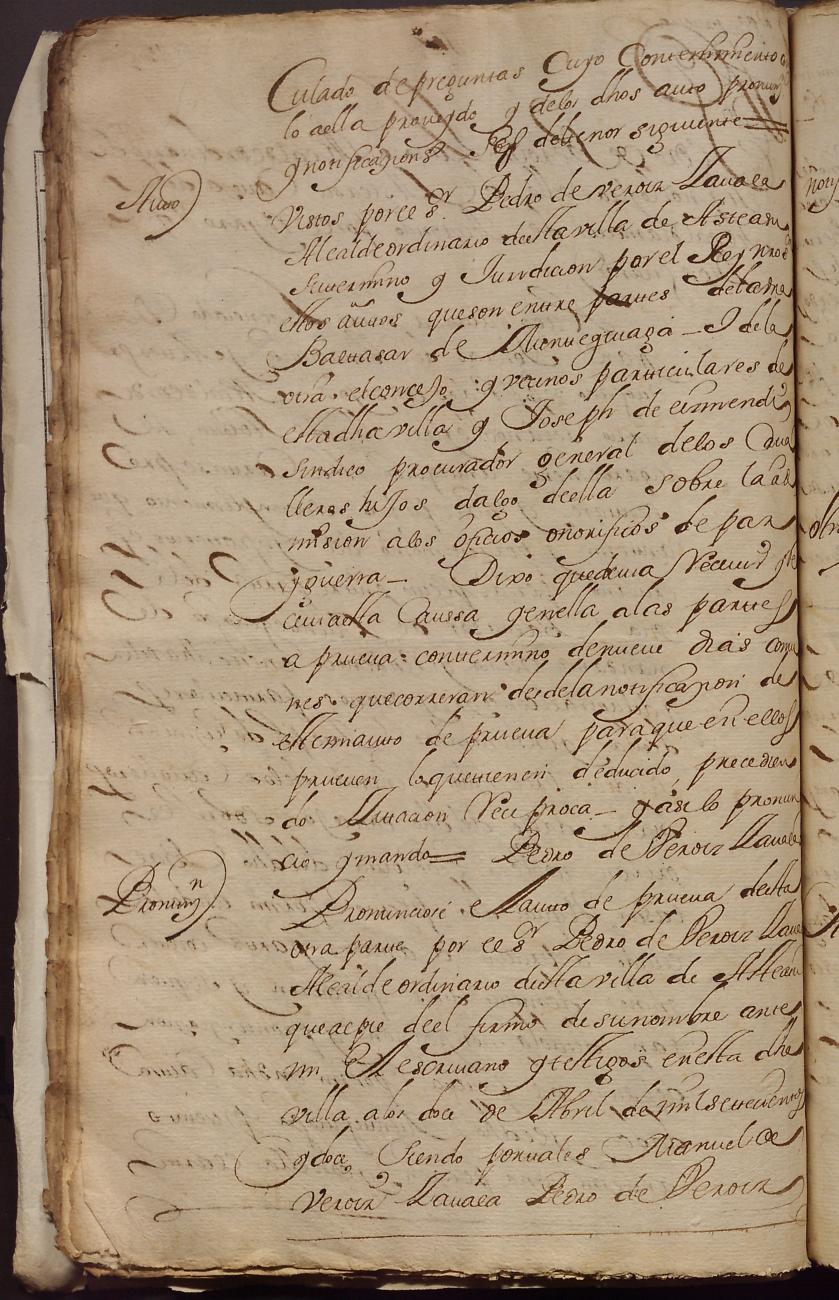 Culado de preguntas Cuyo Contenimiento
lo aella proveydo y delos dhos auto pronun
y notificazions es del tenor siguiente =
Auto)
Vistos por ee Sr. Pedro de veroiz Llauaea
Alcalde ordinario de esta villa de Asteasu
su termino y Jurydicion por el Rey nro s
estos autos que son entre partes de la una
Baltasar de Amiteguiaga _ I de la
otra el concejo y vecinos particulares de
esta dha villa y Joseph de eizmendi
sindico procurador general delos Cava
lleros hijos dalgo deella sobre la ad
mision alos oficios onorificos de paz
y guerra _ Dixo que devia Recivir y Re
civia esta Caussa y en ella a las partes
a prueva con termino de nueve dias comu
nes que correran desde la notificazion de
este mi auto de prueva para que en ellos
prueven lo que tienen deducido precedien
do zitacion Reciproca _ y asi lo pronun
cio y mando = Pedro de Veroiz Llauaea
Pronunn)
Pronunciose el auto de prueva de esta
otra parte por ee Sr Pedro de Veroiz Llaua
Alcalde ordinario de esta villa de Asteasu
que ae pie deel firmo de su nombre ante
mi el escrivano y testigos en esta dha
villa a los doce de Abril de mil setecientos
y doce siendo por tales Manuel de
Veroiz Llauaea Pedro de Veroiz